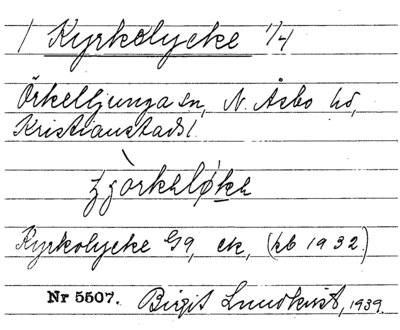 / Kyrkolycke 1/4
Örkelljunga sn, N. Åsbo hd,
Kristianstads l.
Kyrkolycke Gg, ek, (kb 1932.)
Nr 5507. Birgit Lundkvist, 1939.